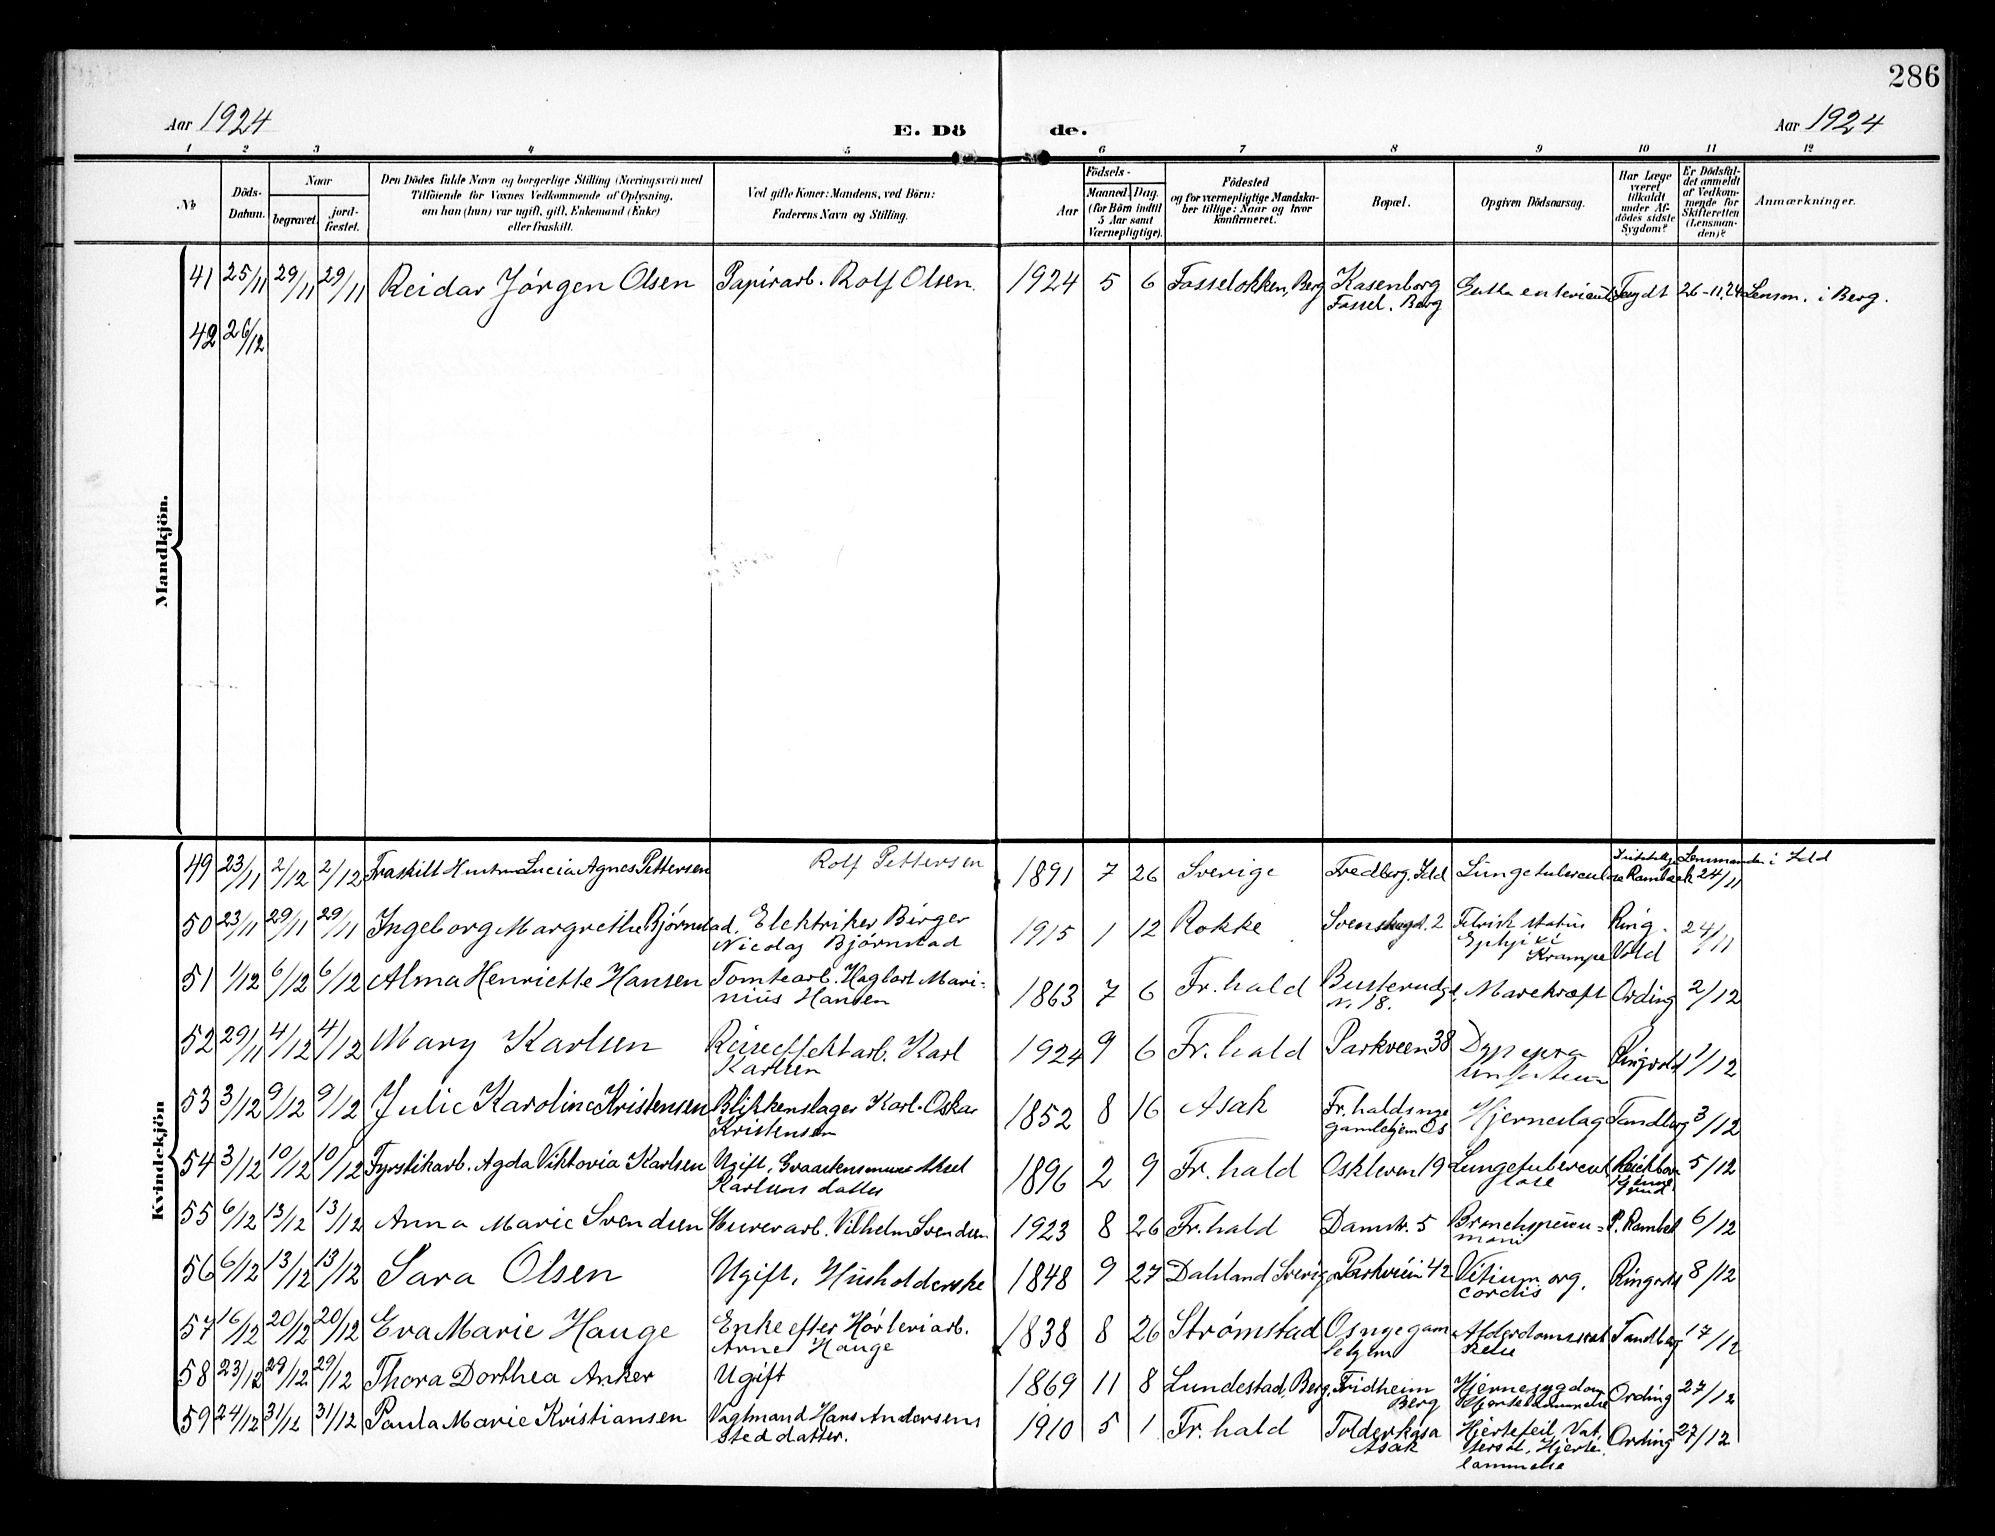 286
Aar 1924 E. Dö de. Aar 1924
1 2 3 4 5 6 7 8 9 10 11 12
No. Döds-Datum. Naar begravet. jord-fæstet. Den Dödes fulde Navn og borgerlige Stilling (Næringsvei) med Tilföiende for Voxnes Vedkommende af Oplysning, om han (hun) var ugift, gift, Enkemand (Enke) eller fraskilt. Ved gifte Koner: Mandens, ved Börn: Faderens Navn og Stilling. Aar Födsels- Maaned Dag. (for Börn indtil 5 Aar samt Værnepligtige). Födested og for værnepligtige Mandskaber tillige: Naar og hvor konfirmeret. Bopæl. Opgiven Dödsaarsag. Har Læge været tilkaldt under Afdödes sidste Sygdom? Er Dödsfaldet anmeldt af Vedkommende for Skifteretten (Lensmanden)? Anmærkninger.
Mandkjön.
41 25/11 29/11 29/11 Reidar Jørgen Olsen Papirarb. Rolf Olsen. 1924 5 6 Fosseløkken, Berg Kasenborg Fossel. Berg 26-11.24 Lensm. i Berg.
42 26/12
Kvindekjön
49 23/11 2/12 2/12 Fraskilt Hustru Lucia Agnes Pettersen Rolf Pettersen 1891 7 26 Sverige Fredberg. Idd Lungetuberculose Rambæk 24/11 Lensmanden i Idd
50 23/11 29/11 29/11 Ingeborg Margrethe Bjørnstad. Elektriker Birger Nicolay Bjørnstad 1915 1 12 Rokke Svenskegd. 2 Krampe Ringvold 24/11
51 1/12 6/12 6/12 Alma Henriette Hansen Tomtearb. Hagbart Marinius Hansen 1863 7 6 Fr.hald Busterudgd. N. 18. Mavekræft Ording 2/12
52 29/11 4/12 4/12 Mary Karlsen Reiseeffektarb. Karl Karlsen 1924 9 6 Fr.hald Parkveien 38 Ringvold 1/12
53 3/12 9/12 9/12 Julie Karoline Kristensen Blikkenslager Karl Oskar Kristensen 1852 8 16 Asak Fr.halds nye gamlehjem Os Hjerneslag Tandberg 3/12
54 3/12 10/12 10/12 Fyrstikarb. Agda Viktoria Karlsen Ugift, Aksel Karlsens datter 1896 2 9 Fr.hald Oskleven 19 Lungetuberculose 5/12
55 6/12 13/12 13/12 Anna Marie Svendsen Murerarb. Vilhelm Svendsen 1923 8 26 Fr.hald Damstr. 5 Bronchopneumoni P. Rambæk 6/12
56 6/12 13/12 13/12 Sara Olsen Ugift, Husholderske 1848 9 27 Dalsland Sverige Parkveien 42 Vitium org. cordis Ringvold 8/12
57 16/12 20/12 20/12 Eva Marie Hauge Enke efter Høvleriarb. Arne Hauge 1838 8 26 Strømstad Os nye gamlehjem Alderdomssvakkelse Tandberg 17/12
58 23/12 29/12 29/12 Thora Dorthea Anker Ugift 1869 11 8 Lundestad, Berg. Fridheim Berg Hjernesygdom Hjertelammelse Ording 27/12
59 24/12 31/12 31/12 Paula Marie Kristiansen Vagtmand Hans Andersens steddatter. 1910 5 1 Fr.hald Tolderkasa Asak Hjertefeil, Vattersot, Hjertelammelse Ording 27/12